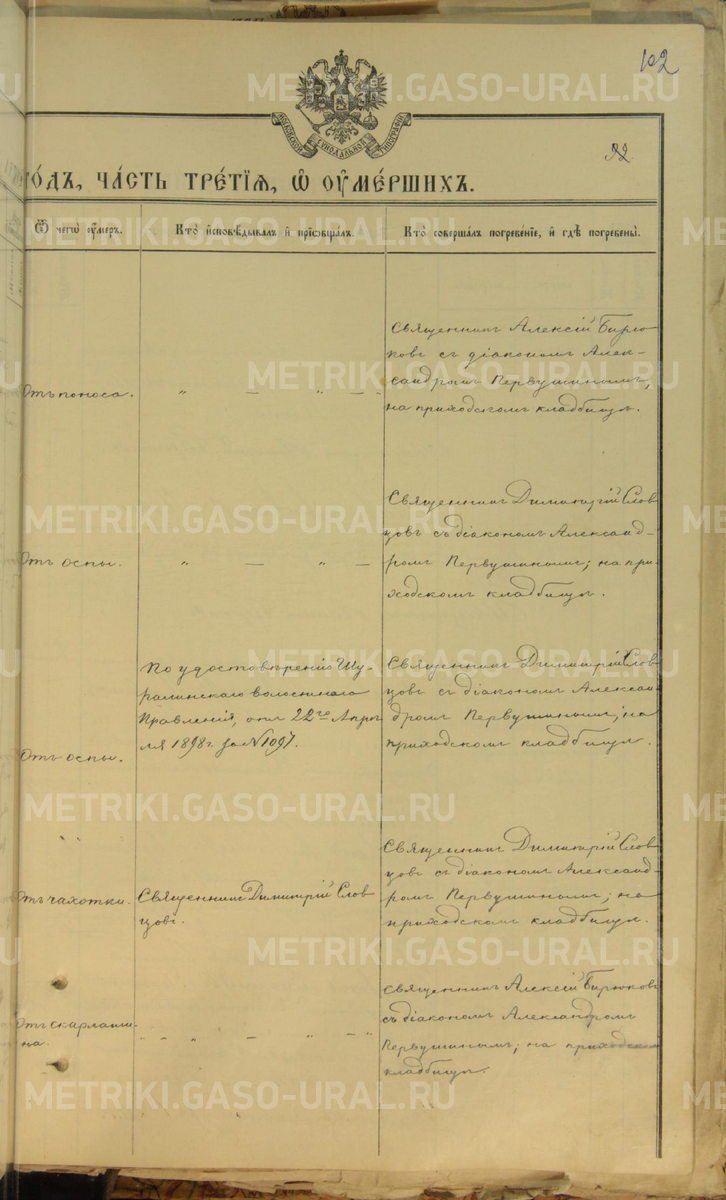 102
МОСКОВСКОЙ СѴНОДАЛЬНОЙ ТИПОГРАФІИ
92
го́дъ, ча́сть тре́тїѧ, ѡ҆ ᲂу҆ме́ршихъ.
Ѿ чегѡ̀ ᲂу҆́меръ.
Кто̀ и҆сповѣ́дывалъ и҆ прїѡбща́лъ.
Кто̀ соверша́лъ погребе́нїе, и҆ гдѣ̀ погребены̀.
Отъ поноса.
" — " —
Священникъ Алексій Бирю-
ковъ съ діакономъ Алек-
сандромъ Первушинымъ,
на приходскомъ кладбищѣ.
Отъ оспы.
" — " —
Священникъ Димитрій Слов
цовъ съ діакономъ Александ-
ромъ Первушинымъ; на при-
ходскомъ кладбищѣ.
Отъ оспы.
По удостовѣренію Шу-
ралинскаго волостнаго
Правленія, отъ 22го Апрѣ
ля 1898 г. за № 1097.
Священникъ Димитрій Слов
цовъ съ діакономъ Алексан
дромъ Первушинымъ; на
приходскомъ кладбищѣ.
Отъ чахотки.
Священникъ Димитрій Слов
цовъ.
Священникъ Димитрій Слов
цовъ съ діакономъ Александ-
ромъ Первушинымъ; на
приходскомъ кладбищѣ.
Отъ скарлати-
на.
- - " - " - "
Священникъ Алексій Бирюковъ
съ діакономъ Александромъ
Первушинымъ; на приходском
кладбищѣ.
METRIKI.GASO-URAL.RU
METRIKI.GASO-URAL.RU
METRIKI.GASO-URAL.RU
METRIKI.GASO-URAL.RU
METRIKI.GASO-URAL.RU
METRIKI.GASO-URAL.RU
METRIKI.GASO-URAL.RU
METRIKI.GASO-URAL.RU